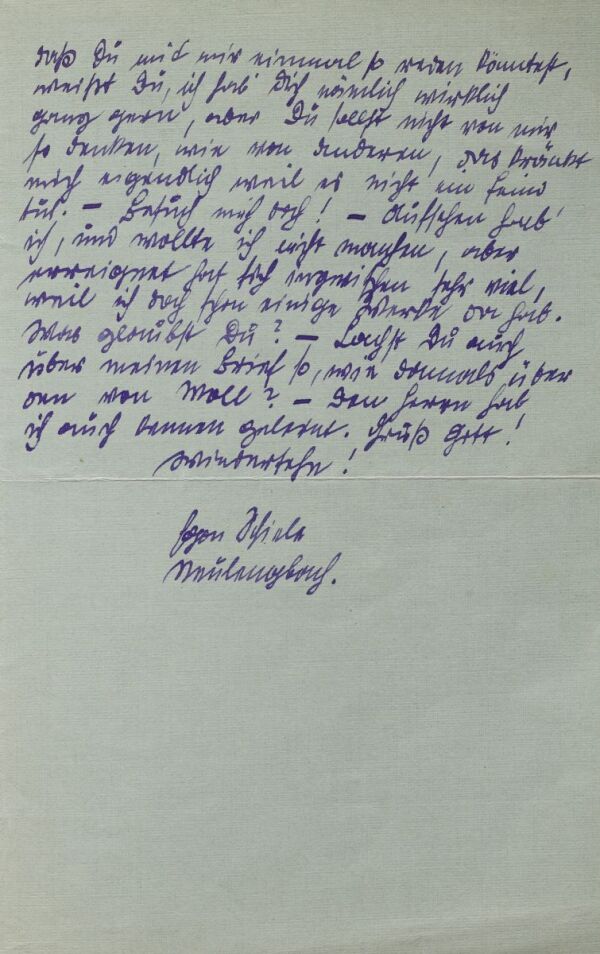 daß Du mit mir einmal so reden könntest,
weißt Du, ich hab' Dich nämlich wirklich
ganz gern, aber Du sollst nicht von mir
so denken, wie von anderen, das kränkt
mich eigendlich weil es nicht ein Feind
tut. – Besuch mich doch! – Aufsehen hab'
ich, und wollte ich nicht machen, aber
erreignet hat sich inzwischen sehr viel,
weil ich doch schon einige Werke da hab.
Was glaubst Du? – Lachst Du auch
über meinen Brief so, wie damals über
den von Moll? – Den Herrn hab
ich auch kennen gelernt. Grüß Gott!
Wiedersehn!
Egon Schiele
Neulengbach.